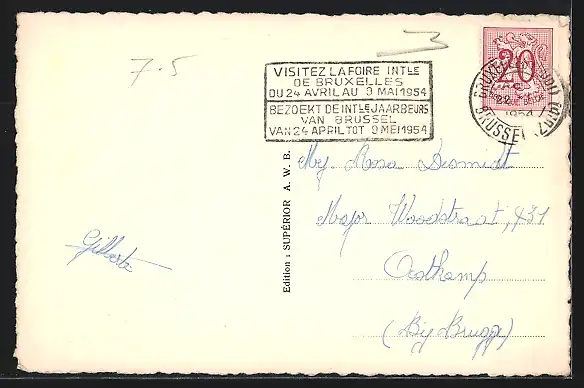 7-5
VISITEZ LA FOIRE INTLE
DE BRUXELLES
DU 24 AVRIL AU 9 MAI 1954
BEZOEKT DE INTLE JAARBEURS
VAN BRUSSEL
VAN 24 APRIL TOT 9 MEI 1954
20
1954
BRUSSEL
Mej. Rosa Desmidt
Major Woodstraat, 431
Oostkamp
(Bij Brugge)
Gilberte
Edition : SUPÉRIOR A. W. B.